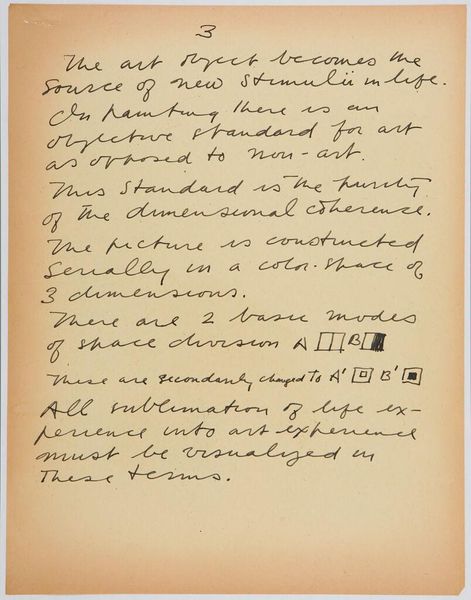 3
The art object becomes the
source of new stimulii in life.
In painting there is an
objective standard for art
as opposed to non-art.
This standard is the purity
of the dimensional coherence.
The picture is constructed
serially in a color-space of
3 dimensions.
There are 2 basic modes
of space division A B
These are secondarily changed to A' B'
All sublimation of life ex-
perience into art experience
must be visualized in
these terms.